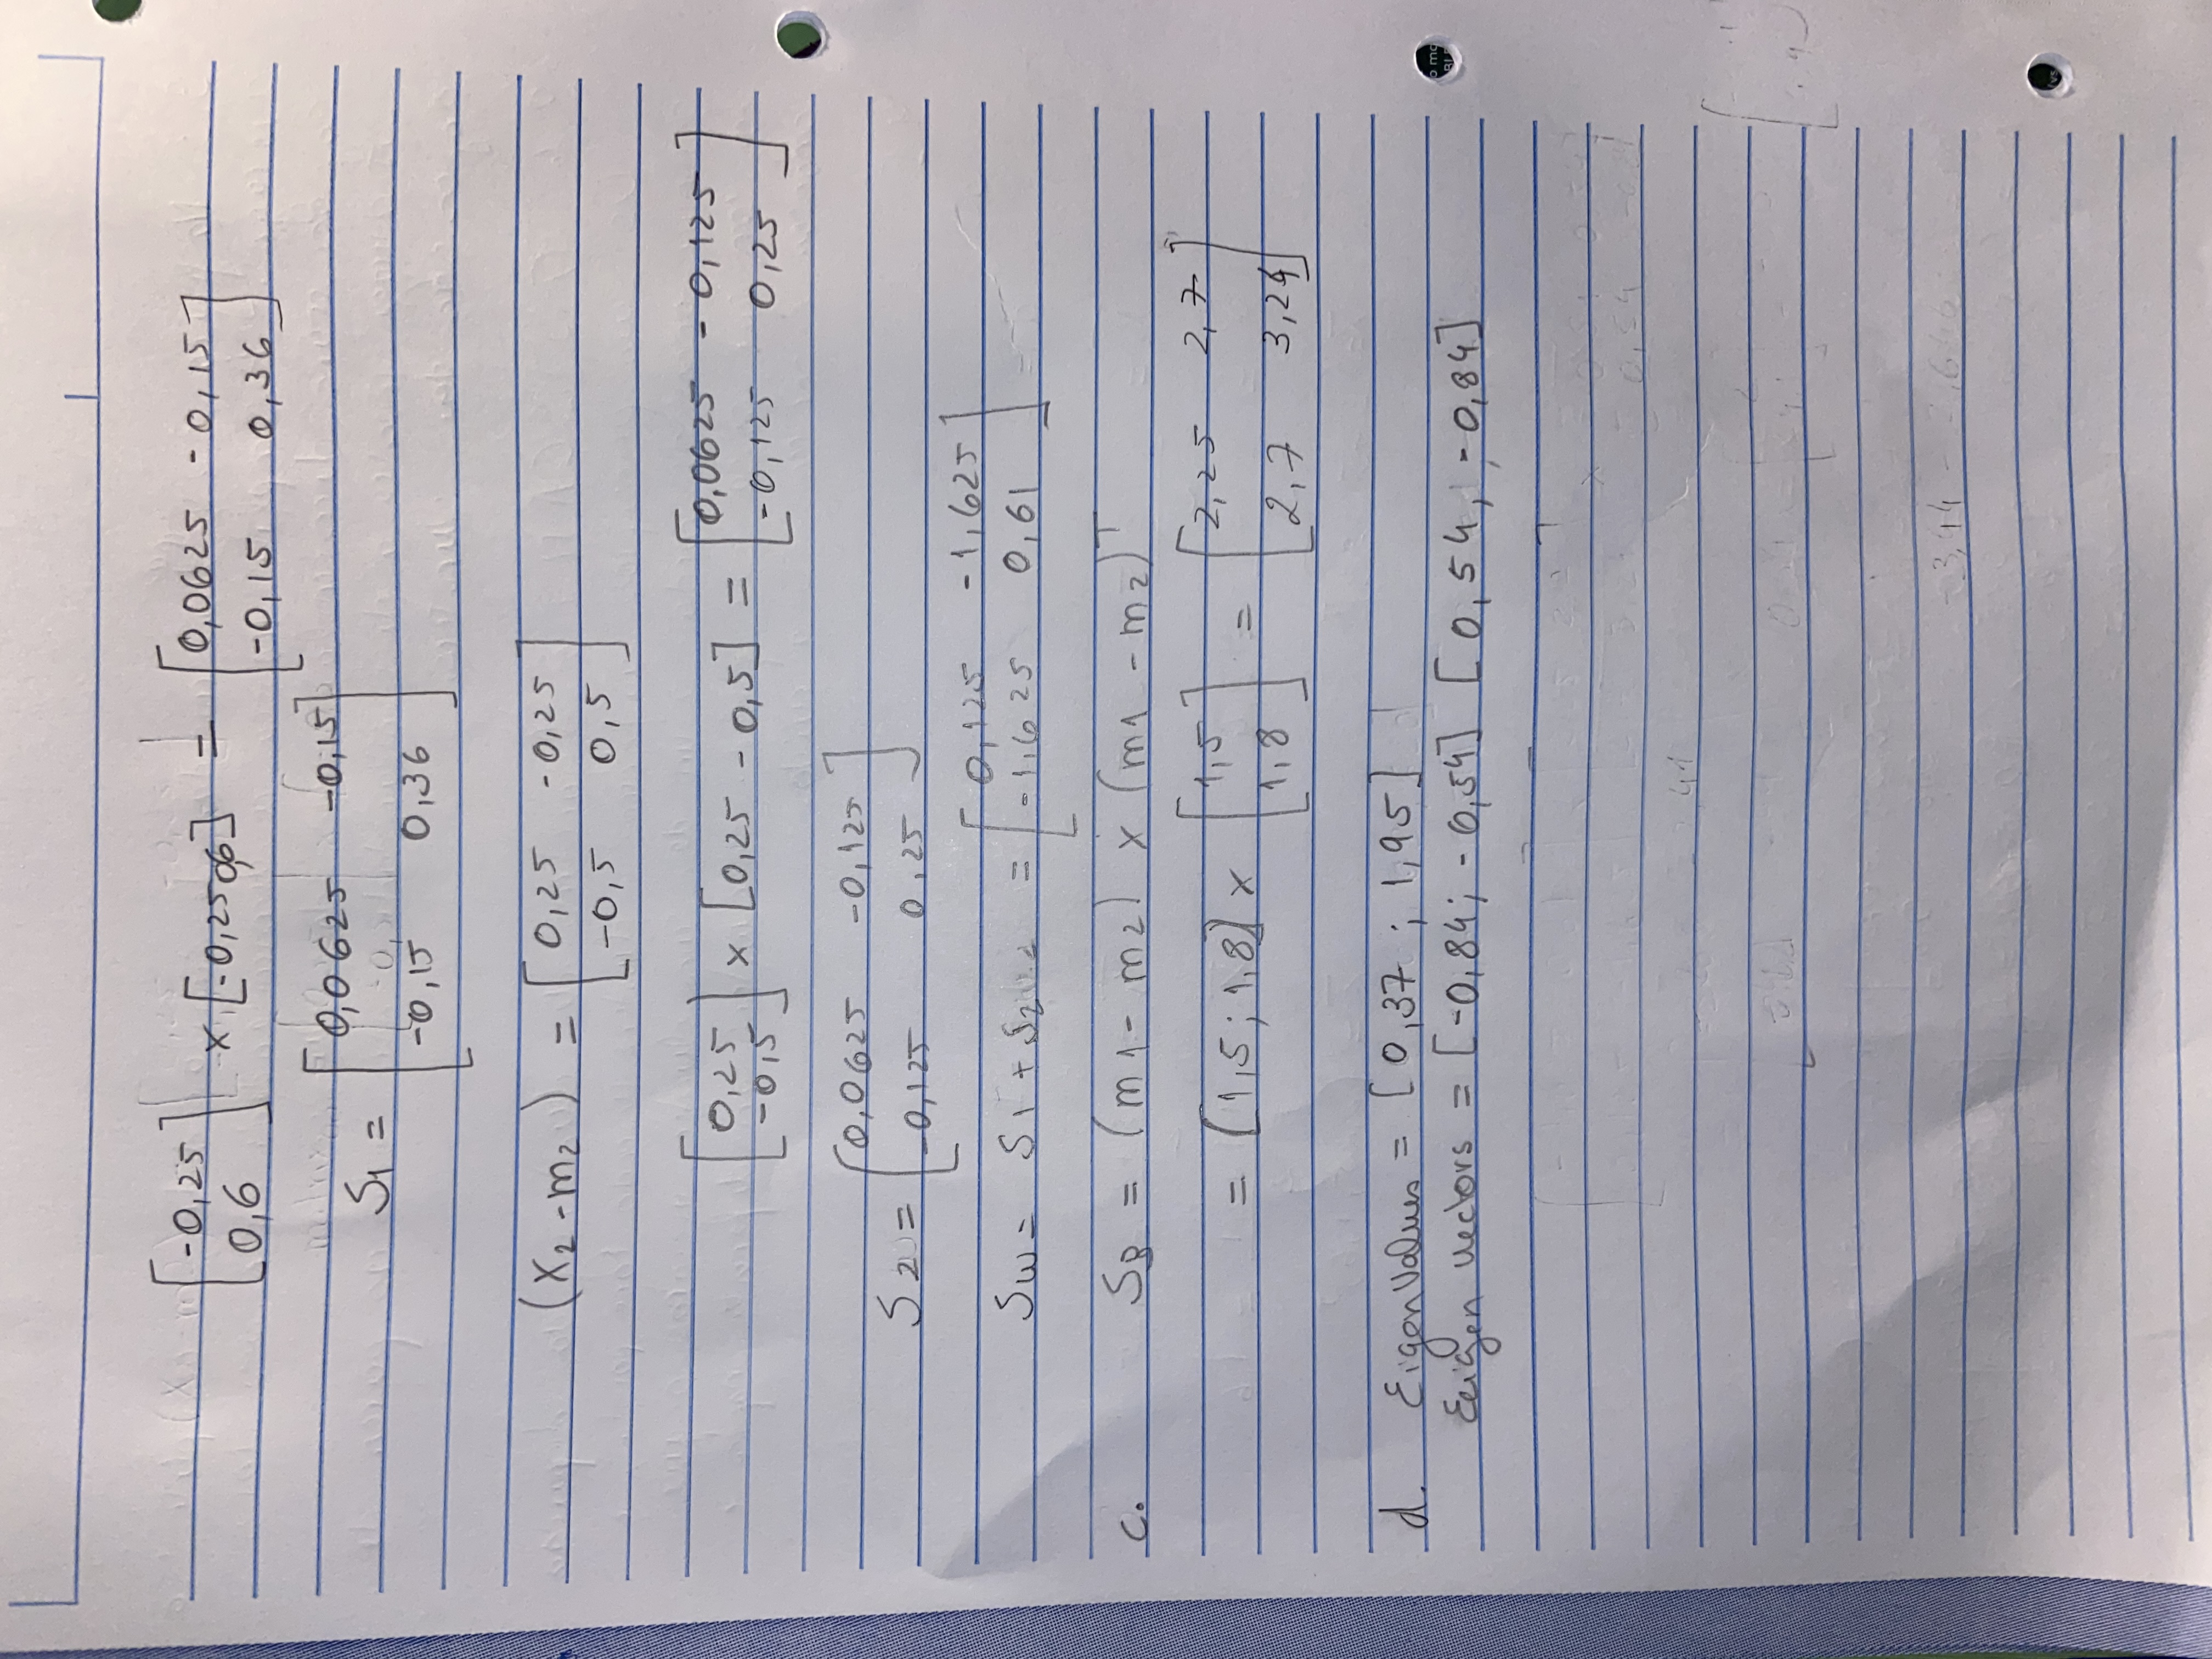 [-0,25
0,6] × [-0,25 0,6] = [0,0625 -0,15
-0,15 0,36]
S1 = [0,0625 -0,15
-0,15 0,36]
(X2 - m2) = [0,25 -0,25
-0,5 0,5]
[0,25
-0,5] × [0,25 -0,5] = [0,0625 -0,125
-0,125 0,25]
S2 = [0,0625 -0,125
-0,125 0,25]
Sw = S1 + S2 = [0,125 -1,625
-1,625 0,61]
c. SB = (m1 - m2) × (m1 - m2)T
= [1,5; 1,8] × [1,5
1,8] = [2,25 2,7
2,7 3,24]
d. EigenValues = [0,37 ; 1,95]
Eeigen vectors = [-0,84; -0,54] [0,54; -0,84]